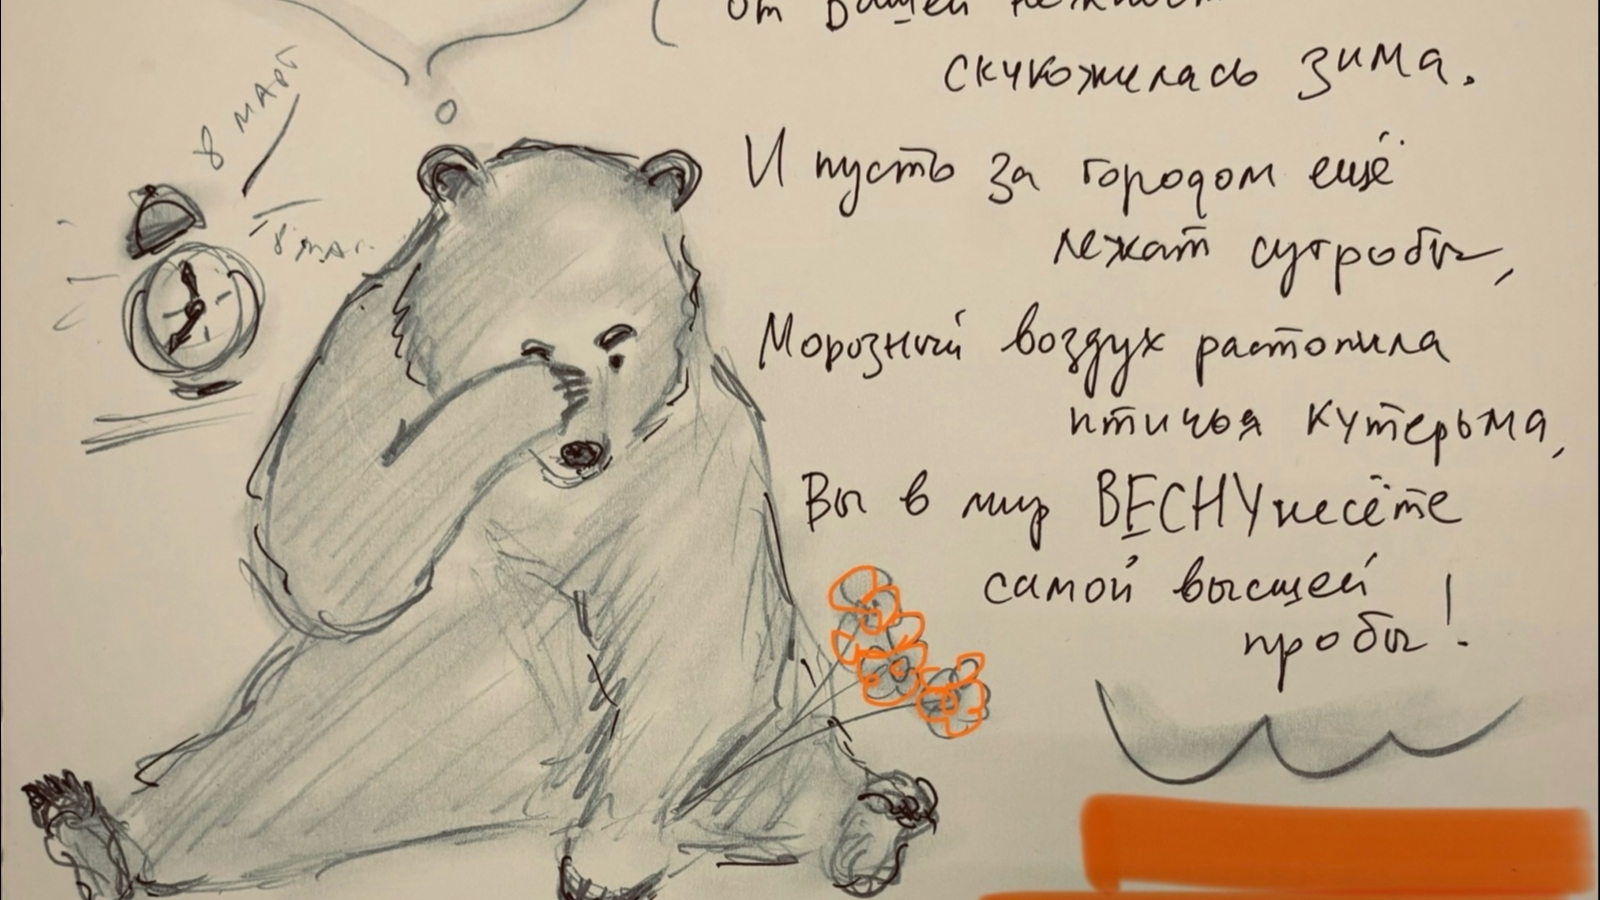 от Вашей нежности
скукожилась зима.
И пусть за городом ещё
лежат сугробы,
Морозный воздух растопила
птичья кутерьма,
Вы в мир ВЕСНУ несёте
самой высшей
пробы!
8 МАРТ
8 мар.